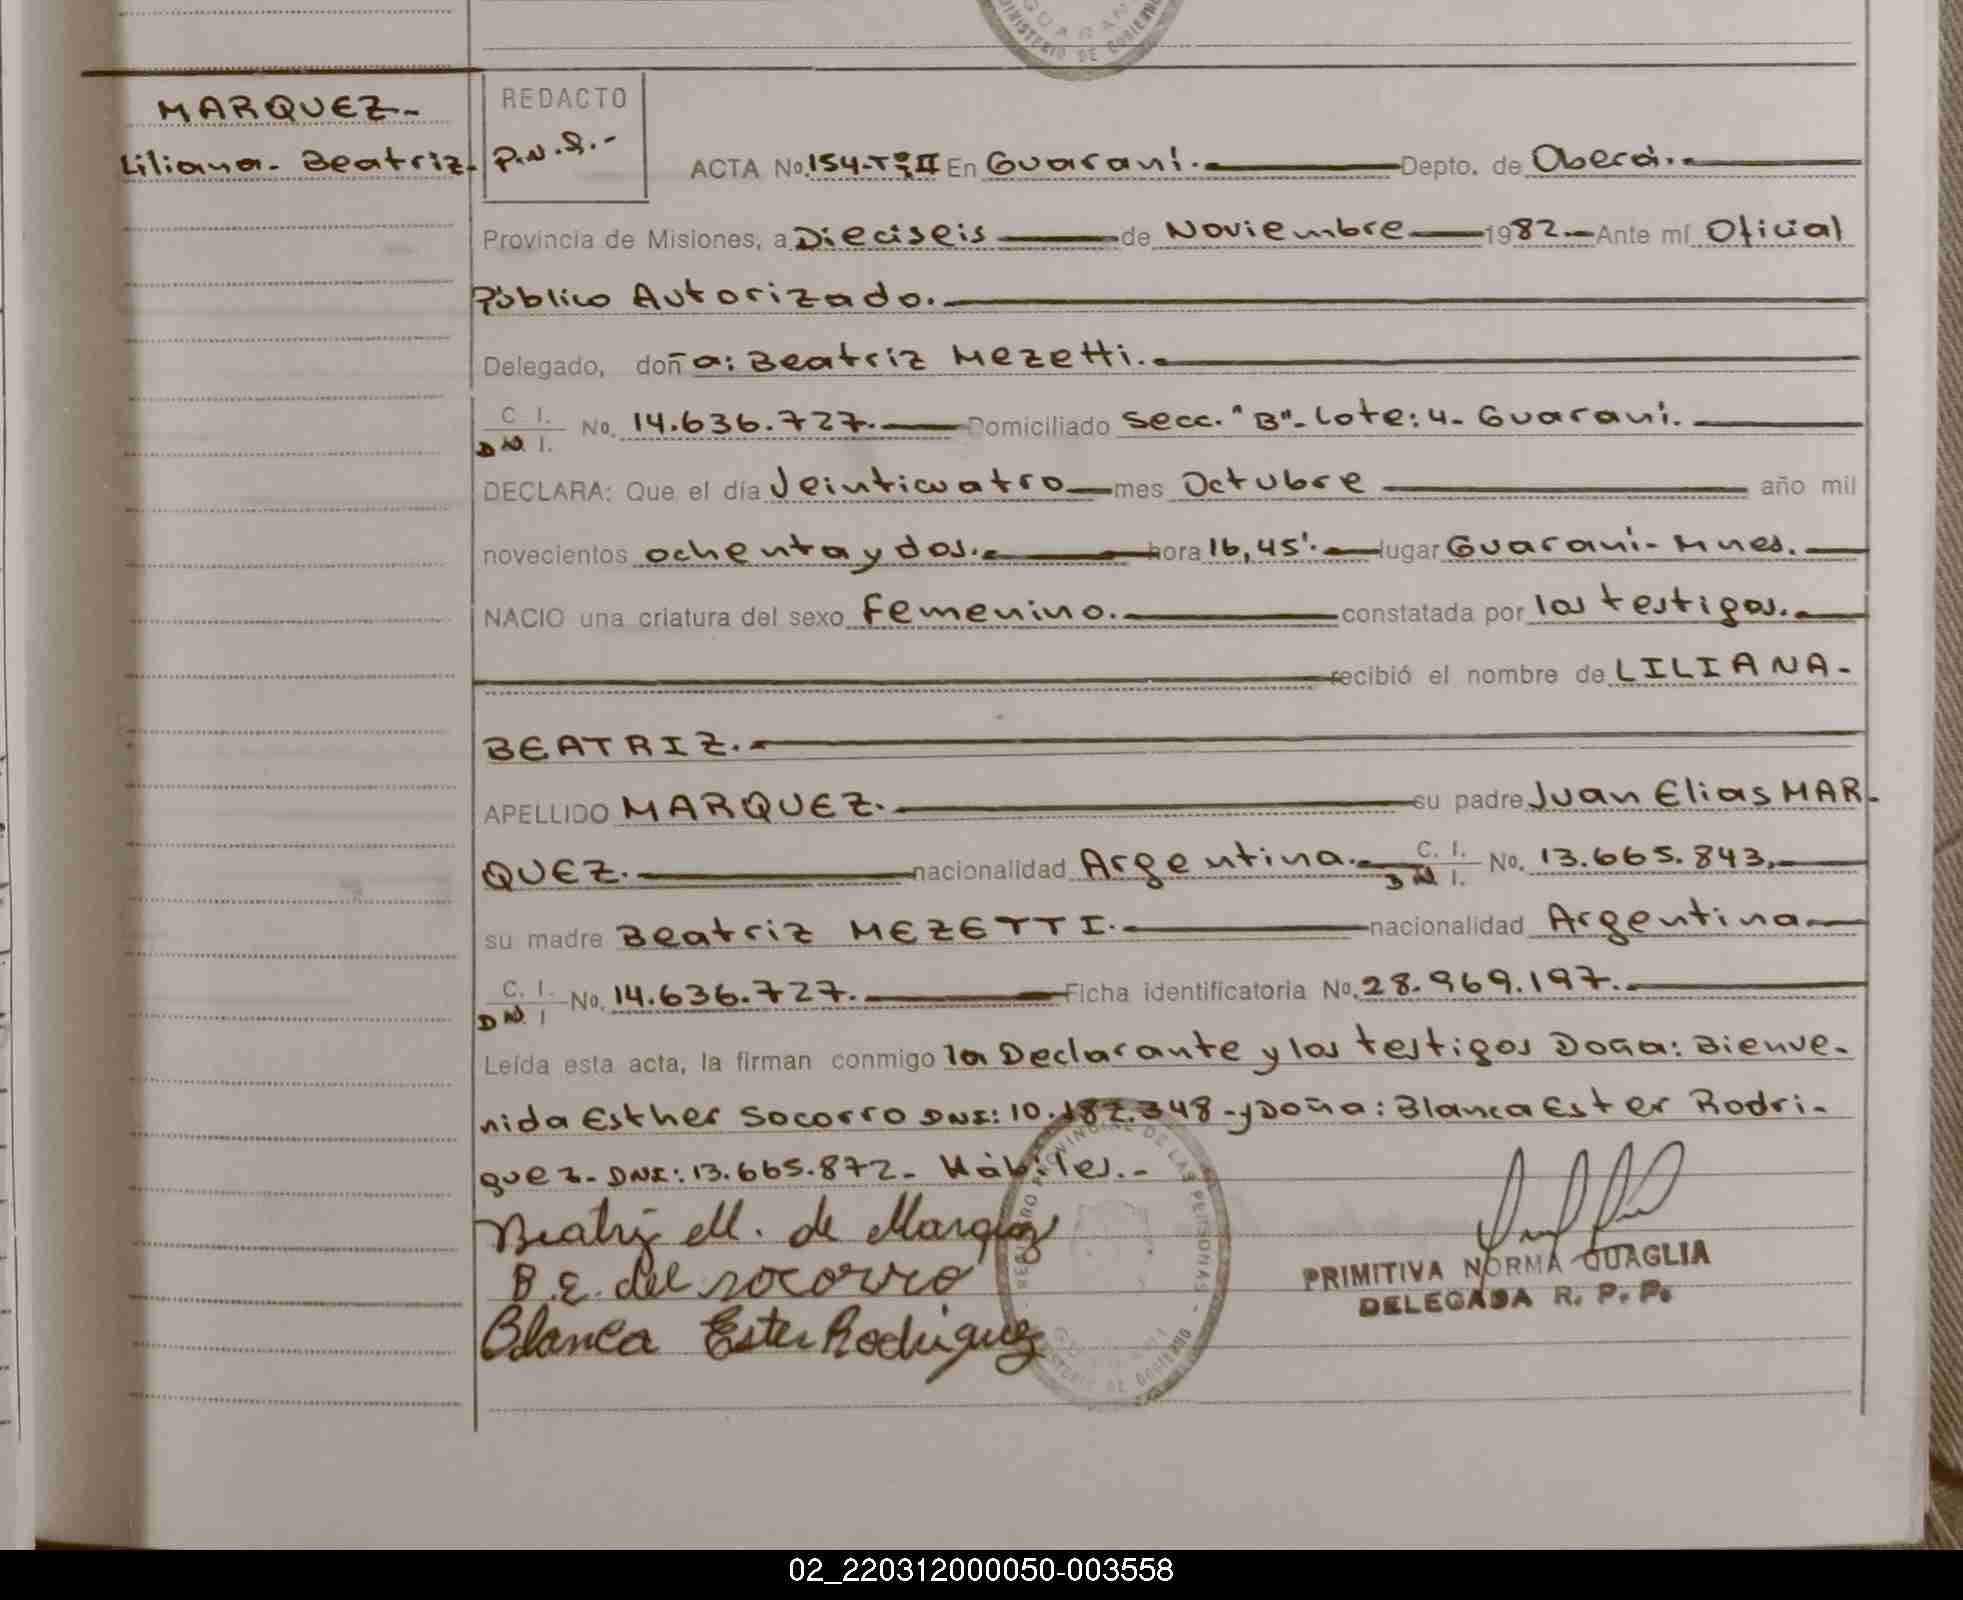 GUARANI
MINISTERIO DE GOBIERNO
MARQUEZ.-
Liliana. Beatriz.
REDACTO
P.N.Q.-
ACTA No. 154-Tº II En Guaraní. Depto. de Oberá.
Provincia de Misiones, a Dieciseis de Noviembre 1982 Ante mí Oficial
Público Autorizado.
Delegado, doña: Beatriz Mezetti.
C. I.
D N. I. No. 14.636.727. Domiciliado Secc. "B". Lote: 4. Guaraní.
DECLARA: Que el día Veinticuatro mes Octubre año mil
novecientos ochenta y dos. hora 16,45'. lugar Guaraní- Mnes.
NACIO una criatura del sexo Femenino. constatada por los testigos.
recibió el nombre de LILIANA-
BEATRIZ.
APELLIDO MARQUEZ. su padre Juan Elias MAR-
QUEZ. nacionalidad Argentina. C. I. D N I. No. 13.665.843.
su madre Beatriz MEZETTI. nacionalidad Argentina
C. I. D N. I No. 14.636.727. Ficha identificatoria No. 28.969.197.
Leída esta acta, la firman conmigo la Declarante y los testigos Doña: Bienve-
nida Esther Socorro DNI: 10.187.348-y Doña: Blanca Ester Rodri-
guez- DNI: 13.665.872- Hábiles.-
Beatriz M. de Marquez
B.E. del socorro
Blanca Ester Rodriguez
REGISTRO PROVINCIAL DE LAS PERSONAS
MINISTERIO DE GOBIERNO
PRIMITIVA NORMA QUAGLIA
DELEGADA R. P. P.
02_220312000050-003558